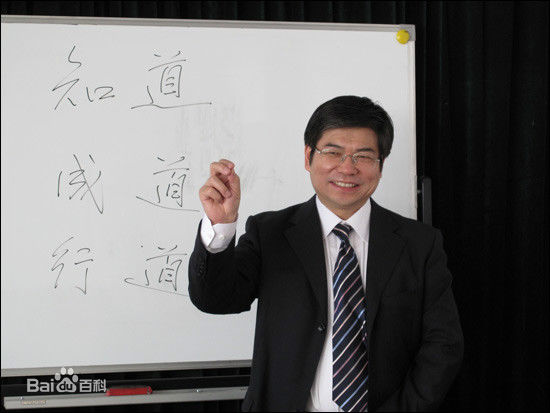 知道
成道
行道
Bai du 百科